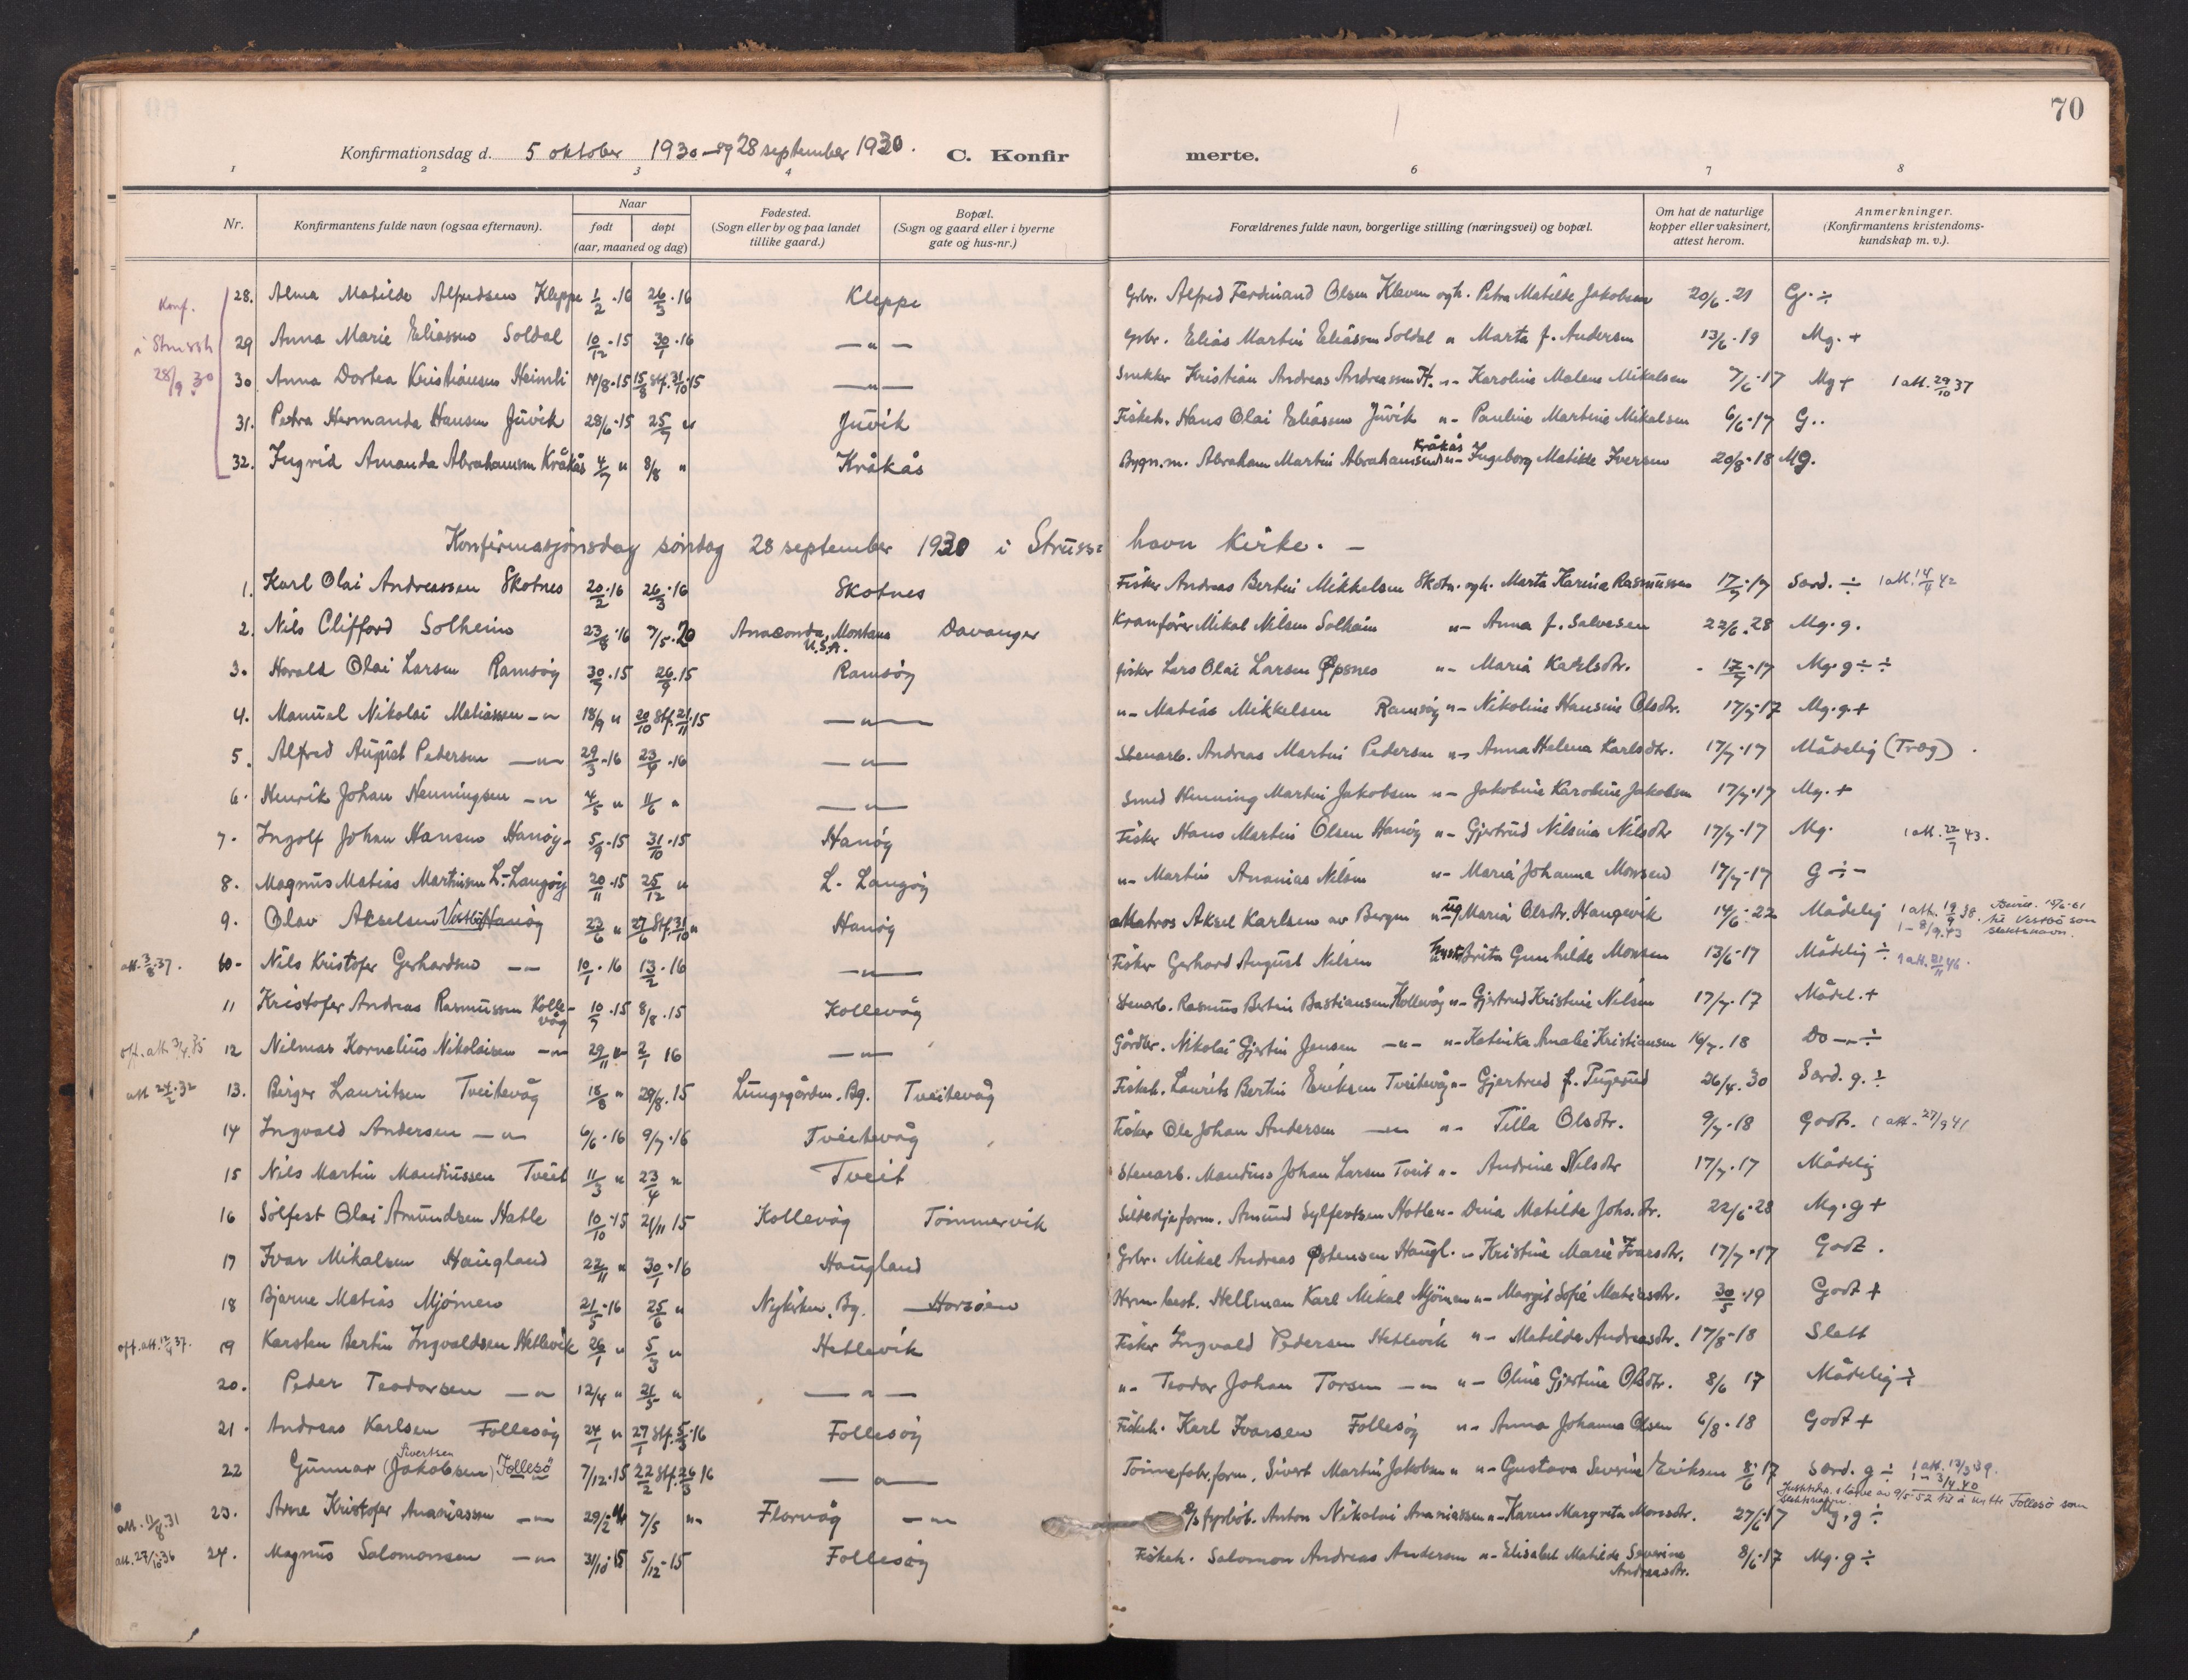 70
Konfirmationsdag d. 5 oktober 1930 - og 28 september 1930. C. Konfirmerte.
1 2 3 4 6 7 8
Nr. Konfirmantens fulde navn (ogsaa efternavn). Naar født døpt (aar, maaned og dag) Fødested. (Sogn eller by og paa landet tillike gaard.) Bopæl. (Sogn og gaard eller i byerne gate og hus-nr.) Forældrenes fulde navn, borgerlige stilling (næringsvei) og bopæl. Om hat de naturlige kopper eller vaksinert, attest herom. Anmerkninger. (Konfirmantens kristendoms-kundskap m. v.).
Konf. i Strussh 28/9 30
28. Alma Matilde Alfredsen Kleppe 1/2·16 26/3·16 Kleppe Grbr. Alfred Ferdinand Olsen Kleven og h. Petra Matilde Jakobsen 20/6·21 G. ÷
29 Anna Marie Eliassen Soldal 10/12·15 30/1·16 —„— Grbr. Elias Martin Eliassen Soldal „ Marta f. Andersen 13/6·19 Mg. +
30 Anna Dortea Kristiansen Heimli 14/8·15 15/8 Stf. 31/10·15 —„— Snekker Kristian Andreas Andreassen H. „- Karoline Malene Mikalsen 7/6·17 Mg + 1 att. 29/10 37
31. Petra Hermanda Hansen Juvik 28/6·15 25/7 „ Juvik Fiskeh. Hans Olai Eliassen Juvik „- Pauline Martine Mikalsen 6/6·17 G..
32. Ingrid Amanda Abrahamsen Kråkås 4/7 „ 8/8 „ Kråkås Bygn.m. Abraham Martin Abrahamsen Kråkås „- Ingeborg Matilde Iversen 20/8·18 Mg.
Konfirmasjonsdag søndag 28 september 1930 i Struss= havn kirke. —
1. Karl Olai Andreassen Skotnes 20/2·16 26/3·16 Skotnes Fisker Andreas Bertin Mikkelsen Skotn. og h. Marta Karina Rasmussen 17/7·17 Særd. ÷ 1 att. 14/4 42
2. Nils Clifford Solheim 23/8·16 7/5·20 Anaconda, Montana U.S.A. Davanger Kranfører Mikal Nilsen Solheim „- Anna f. Salvesen 22/6·28 Mg. g.
3. Harald Olai Larsen Ramsøy 30/7·15 26/9·15 Ramsøy fisker Lars Olai Larsen Øpsnes „- Maria Karlsdtr. 17/7·17 Mg. g ÷ ÷
4. Manuel Nikolai Matiassen -„- 18/9 „ 20/10 Stf. 21/11·15 —„— „- Matias Mikkelsen Ramsøy „- Nikoline Hansine Olsdtr. 17/7·17 Mg. g. +
5. Alfred August Pedersen —„— 29/3·16 23/4·16 —„— Stenarb. Andreas Martin Pedersen „- Anna Helena Karlsdtr. 17/7·17 Mådelig (Træg).
6. Henrik Johan Henningsen -„ 4/5 „ 11/6 „ —„— Smed Henning Martin Jakobsen „- Jakobine Karoline Jakobsen 17/7·17 Mg. +
7. Ingolf Johan Hansen Hanøy- 5/9·15 31/10·15 Hanøy Fisker Hans Martin Olsen Hanøy „- Gjertrud Nilsina Nilsdtr 17/7·17 Mg. 1 att. 22/7 43.
8. Magnus Matias Martinsen L.-Langøy 20/11·15 25/12 „ L- Langøy „- Martin Ananias Nilsen „- Maria Johanna Monsen 17/7·17 G ÷ -
9. Olav Akselsen Vestbø Hanøy 23/6 „ 27/6 Stf. 31/10 „ Hanøy Matros Aksel Karlsen av Bergen ug Maria Olsdtr. Haugevik 14/6·22 Mådelig 1 att. 19/9 38. 1 - 8/9.43 til Vestbø som slektsnavn.
att. 3/8.37. 10- Nils Kristofer Gerhardsen -- 10/1·16 13/2·16 —„— Fisker Gerhard August Nilsen hust. Brita Gunhilde Monsen 13/6·17 Mådelig ÷ 1 att. 21/11 46.
11 Kristofer Andreas Rasmussen Kollevåg 10/7·15 8/8·15 Kollevåg Stenarb. Rasmus Bertin Bastiansen Kollevåg „- Gjertrud Kristine Nilsen 17/7·17 Mådel. +
off. att. 3/4.35 12 Nilmar Kornelius Nikolaisen -„- 29/11 „ 2/1 16 —„— Gårdbr. Nikolai Gjertin Jensen -„- „- Katinka Amalie Kristiansen 16/7·18 Do -„- ÷
att 24/2·32 13. Birger Lauritsen Tveitevåg 18/8 „ 29/8·15 Lungegården. Bg. Tveitevåg Fiskeh. Laurits Bertin Eriksen Tveitevåg „- Gjertrud f. 26/4·30 Særd. g. ÷
14 Ingvald Andersen -„- 6/6·16 9/7·16 Tveitevåg Fisker Ole Johan Andersen -„- „- Tilla Olsdtr. 9/7·18 Godt. 1 att. 27/9 41
15 Nils Martin Mandiussen Tveit 11/3 „ 23/4 „ Tveit Stenarb. Mandius Johan Larsen Tveit „- Andrine Nilsdtr 17/7·17 Mådelig
16 Solfest Olai Amundsen Hatle 10/10·15 21/11 15 Kollevåg Tømmervik Sildoljeform. Amund Sylfestsen Hatle „- Dina Matilde Johs.dtr. 22/6·28 Mg. g +
17 Ivar Mikalsen Haugland 22/11 „ 30/1·16 Haugland Grbr. Mikal Andreas Østensen Haugl. „ Kristine Marie Ivarsdtr. 17/7·17 Godt.
18 Bjarne Matias Mjømen 21/5·16 25/6 „ Nykirken. Bg. Horsøen Hellman Karl Mikal Mjømen „- Margit Sofie Matiasdtr. 30/5·19 Godt +
off. att. 12/4 37. 19 Karsten Bertin Ingvaldsen Hetlevik 26/1 „ 5/3 „ Hetlevik Fisker Ingvald Pedersen Hetlevik „- Matilde Andreasdtr. 17/8·18 Slett
20. Peder Teodorsen -„- 12/4 „ 21/5 „ —„— „- Teodor Johan Torsen -„- „- Oline Gjertine Olsdtr. 8/6 17 Mådelig ÷
21. Andreas Karlsen Follesøy 24/1 „ 27/1 Stf. 5/3·16 Follesøy Fiskeh. Karl Ivarsen Follesøy „- Anna Johanna Olsen 6/8·18 Godt +
22 Gunnar Sivertsen (Jakobsen) Follesø 7/12·15 22/2 Stf. 26/3 16 —„— Tønnefabr.form. Sivert Martin Jakobsen „ „- Gustava Severine Eriksen 8/6·17 Særd. g ÷ 1 att. 13/3 39. 1 - 3/4 40 Justisdep. i brev av 9/5-52 til å nytte Follesø som slektsnavn.
att. 11/8 31 23. Arne Kristofer Ananiassen -„- 29/2 „ 7/5 „- Florvåg -„- D/s fyrbøt. Anton Nikolai Ananiassen „- Karen Margreta Monsdtr. 27/6·17 Mg. g ÷
att. 27/10 36 24. Magnus Salomonsen -„- 31/10·15 5/12·15 Follesøy Fiskeh. Salomon Andreas Andersen „- Elisabet Matilde Severine Andreasdtr. 8/6·17 Mg. g ÷